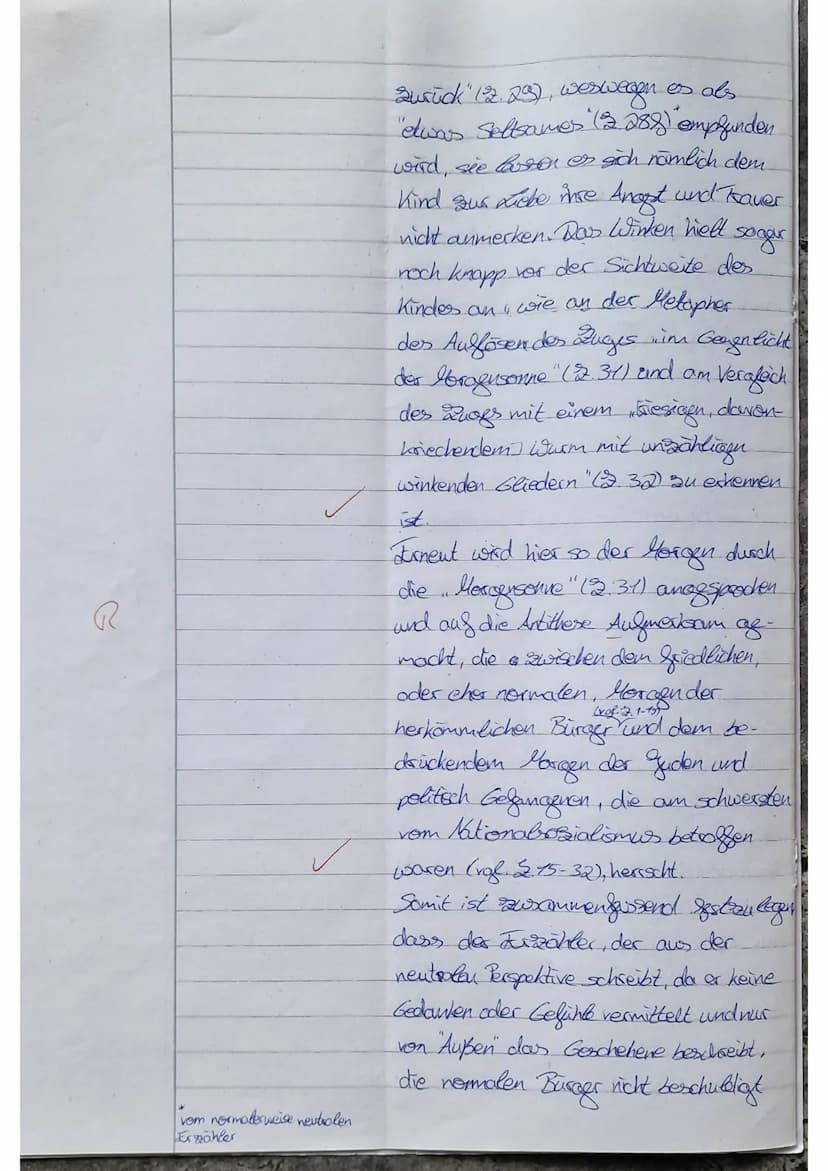 zurück" (Z. 29), weswegen es als
"etwas Seltsames" (Z. 28f) * empfunden
wird, sie lassen es sich nämlich dem
Kind zur Liebe ihre Angst und Trauer
nicht anmerken. Das Winken hielt sogar
noch knapp vor der Sichtweite des
Kindes an, wie an der Metapher
des Auflösen des Zuges „im Gegenlicht
der Morgensonne" (Z. 31) und am Vergleich
des Zuges mit einem „riesigen, davon-
kriechendem] Wurm mit unzähligen
winkenden Gliedern" (Z. 32) zu erkennen
ist.
Erneut wird hier so der Morgen durch
die „Morgensonne" (Z. 31) angesprochen
R
und auf die Antithese Aufmerksam ge-
macht, die zwischen dem friedlichen,
oder eher normalen, Morgen der
(vgl. Z. 1-15)
herkömmlichen Bürger und dem be-
drückendem Morgen der Juden und
politisch Gefangenen, die am schwersten
vom Nationalsozialismus betroffen
waren (vgl. Z. 15-32), herrscht.
Somit ist zusammenfassend festzulegen
dass der Erzähler, der aus der
neutralen Perspektive schreibt, da er keine
Gedanken oder Gefühle vermittelt und nur
von "Außen" das Geschehene beschreibt,
die normalen Bürger nicht beschuldigt
* vom normalerweise neutralen
Erzähler